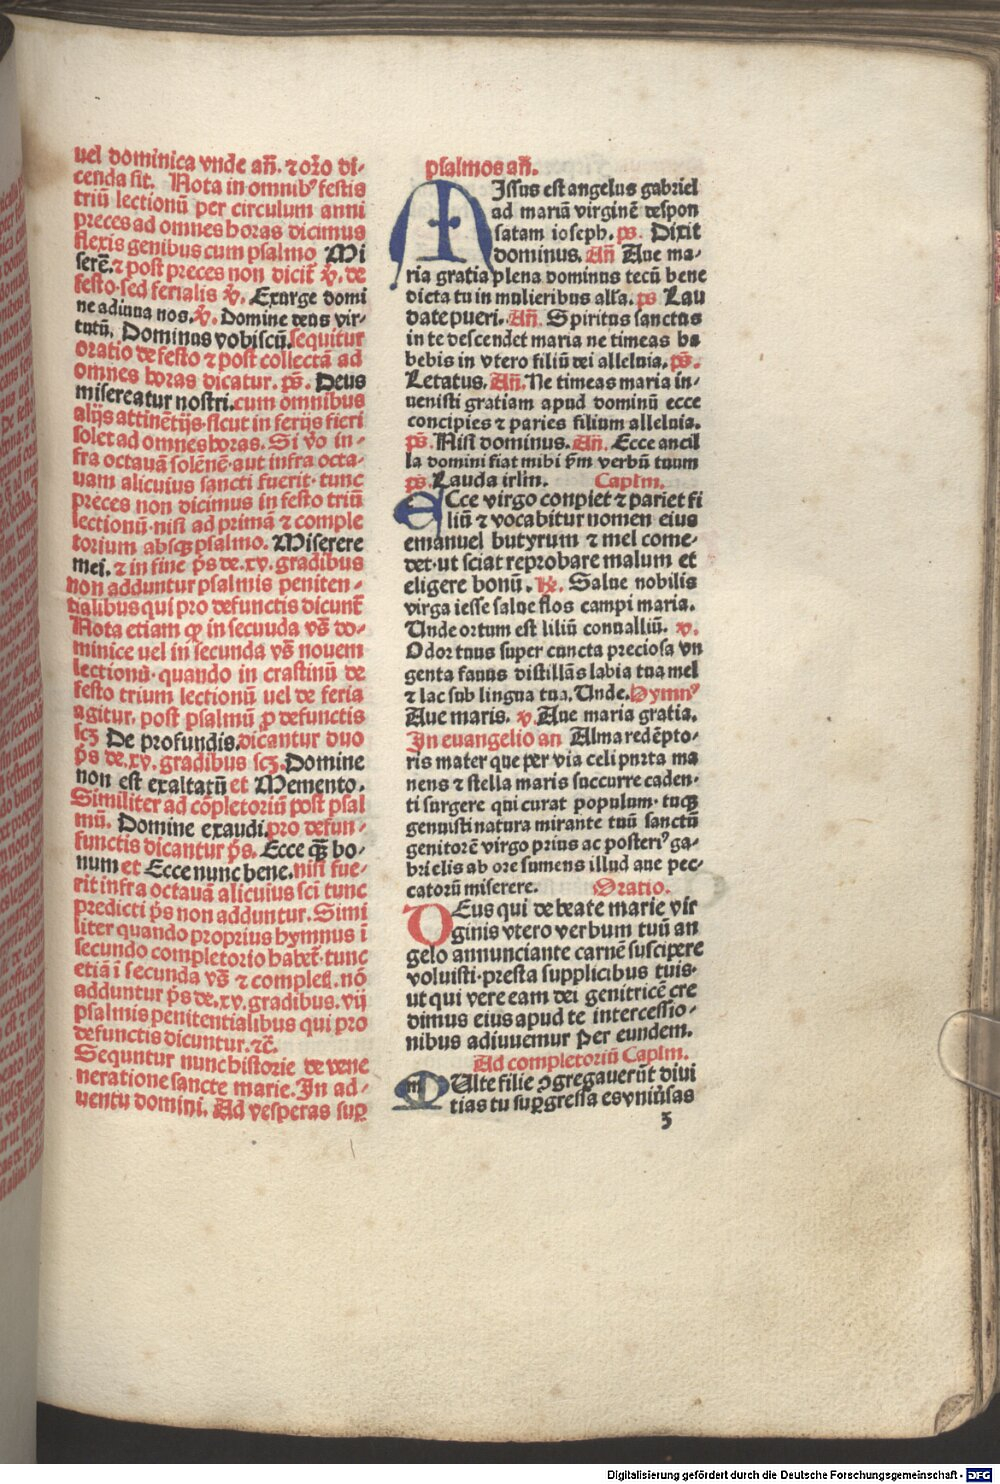 uel dominica vnde añ. ⁊ or̃o di-
cenda sit. Nota in omnib⁹ festis
triũ lectionũ per circulum anni
preces ad omnes horas dicimus
flexis genibus cum psalmo Mi
serẽ. ⁊ post preces non dicit̃ v̾. de
festo·sed ferialis v̾. Exurge domi
ne adiuua nos. v̾. Domine deus vir-
tutũ. Dominus vobiscũ. sequitur
oratio de festo ⁊ post collectã ad
omnes horas dicatur. ps̃. Deus
misereatur nostri. cum omnibus
alijs attinẽtijs·sicut in ferijs fieri
solet ad omnes horas. Si v̊o in-
fra octauã solẽnẽ·aut infra octa-
uam alicuius sancti fuerit·tunc
preces non dicimus in festo triũ
lectionũ·nisi ad primã ⁊ comple
torium absqꝫ psalmo. Miserere
mei. ⁊ in fine p̃s de.xv. gradibus
non adduntur psalmis peniten-
tialibus qui pro defunctis dicunt̃
Nota etiam ꝙ in secuuda vs̃ do-
minice uel in secunda vs̃ nouem
lectionũ·quando in crastinũ de
festo trium lectionũ uel de feria
agitur. post psalmũ ꝓ defunctis
scꝫ De profundis. dicantur duo
p̃s de.xv. gradibus scꝫ. Domine
non est exaltatũ et Memento.
Similiter ad cõpletoriũ post psal
mũ. Domine exaudi. pro defun-
functis dicantur p̃s. Ecce qꝫ̃ bo-
num et Ecce nunc bene. nisi fue-
rit infra octauã alicuius sc̃i tunc
predicti p̃s non adduntur. Simi
liter quando proprius hymnus ĩ
secundo completorio habet̃·tunc
etiã ĩ secunda vs̃ ⁊ compleł. nõ
adduntur p̃s de.xv. gradibus. vij
psalmis penitentialibus qui pro
defunctis dicuntur. ⁊c̃.
Sequntur nunc historie de vene
neratione sancte marie. In ad-
uentu domini. Ad vesperas suꝑ
psalmos añ.
MIssus est angelus gabriel
ad mariã virginẽ despon
satam ioseph. ps. Dixit
dominus. Añ Aue ma-
ria gratia plena dominus tecũ bene
dicta tu in mulieribus alła. ps Lau
date pueri. Añ. Spiritus sanctus
in te descendet maria ne timeas ha
bebis in vtero filiũ dei alleluia. ps̃.
Letatus. Añ. Ne timeas maria in-
uenisti gratiam apud dominũ ecce
concipies ⁊ paries filium alleluia.
ps̃. Nisi dominus. Añ. Ecce ancil
la domini fiat mihi ẜm verbũ tuum
ps̃. Lauda irlm. Caplm.
ECce virgo conpiet ⁊ pariet fi
liũ ⁊ vocabitur nomen eius
emanuel butyrum ⁊ mel come-
det·ut sciat reprobare malum et
eligere bonũ. ℟. Salue nobilis
virga iesse salue flos campi maria.
Unde ortum est liliũ conualliũ. v̾.
Odor tuus super cuncta preciosa vn
genta fauus distillãs labia tua mel
⁊ lac sub lingua tua. Unde. Hymn⁹
Aue maris. v̾. Aue maria gratia.
In euangelio an Alma redẽpto-
ris mater que per via celi pnrta ma
nens ⁊ stella maris succurre caden-
ti surgere qui curat populum·tuqꝫ
genuisti natura mirante tuũ sanctũ
genitorẽ virgo prius ac posteri⁹ ga-
brielis ab ore sumens illud aue pec-
catorũ miserere. Oratio.
DEus qui de beate marie vir
ginis vtero verbum tuũ an
gelo annunciante carnẽ suscipere
voluisti·presta supplicibus tuis·
ut qui vere eam dei genitricẽ cre
dimus eius apud te intercessio-
nibus adiuuemur Per eundem.
Ad completoriũ Caplm.
MUlte filie ꝯgregauerũt diui
tias tu suꝑgressa es vniũsas
3
Digitalisierung gefördert durch die Deutsche Forschungsgemeinschaft - DFG